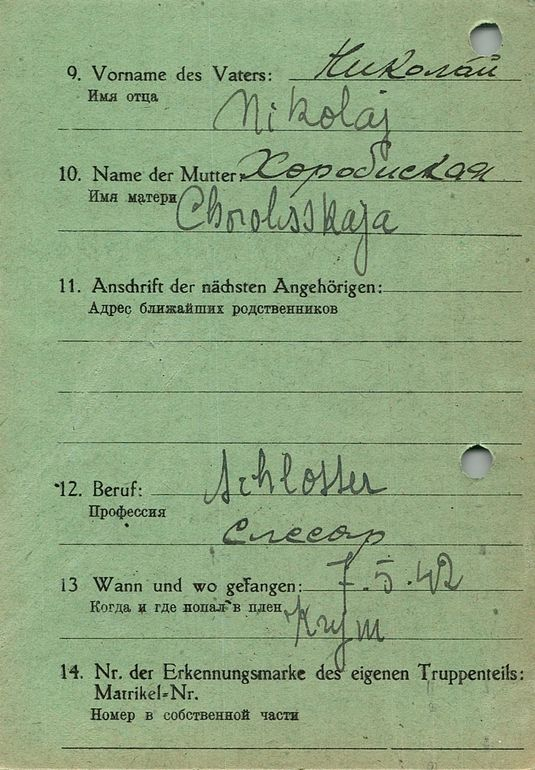 9. Vorname des Vaters: Николай
Имя отца
Nikolaj
10. Name der Mutter: Хоробиская
Имя матери
Chorobsskaja
11. Anschrift der nächsten Angehörigen:
Адрес ближайших родственников
12. Beruf: Schlosser
Профессия
Слесар
13 Wann und wo gefangen: 7.5.42
Когда и где попал в плен
Krym
14. Nr. der Erkennungsmarke des eigenen Truppenteils:
Matrikel-Nr.
Номер в собственной части